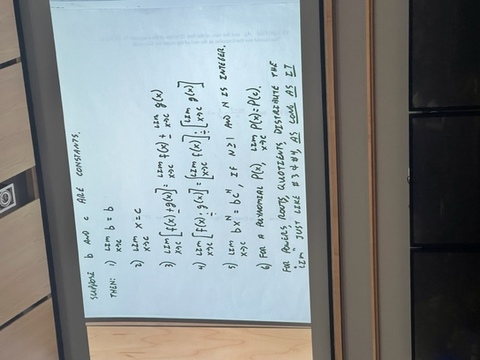 SUPPOSE b AND c ARE CONSTANTS.
THEN: 1) LIM x→c b = b
2) LIM x→c x = c
3) LIM x→c [f(x) ± g(x)] = LIM x→c f(x) ± LIM x→c g(x)
4) LIM x→c [f(x) ÷ g(x)] = [LIM x→c f(x)] ÷ [LIM x→c g(x)]
5) LIM x→c bx^N = bc^N, IF N≥1 AND N IS INTEGER.
6) FOR A POLYNOMIAL P(x), LIM x→c P(x) = P(c).
FOR POWERS, ROOTS, QUOTIENTS, DISTRIBUTE THE
"LIM" JUST LIKE #3 & #4, AS LONG AS IT